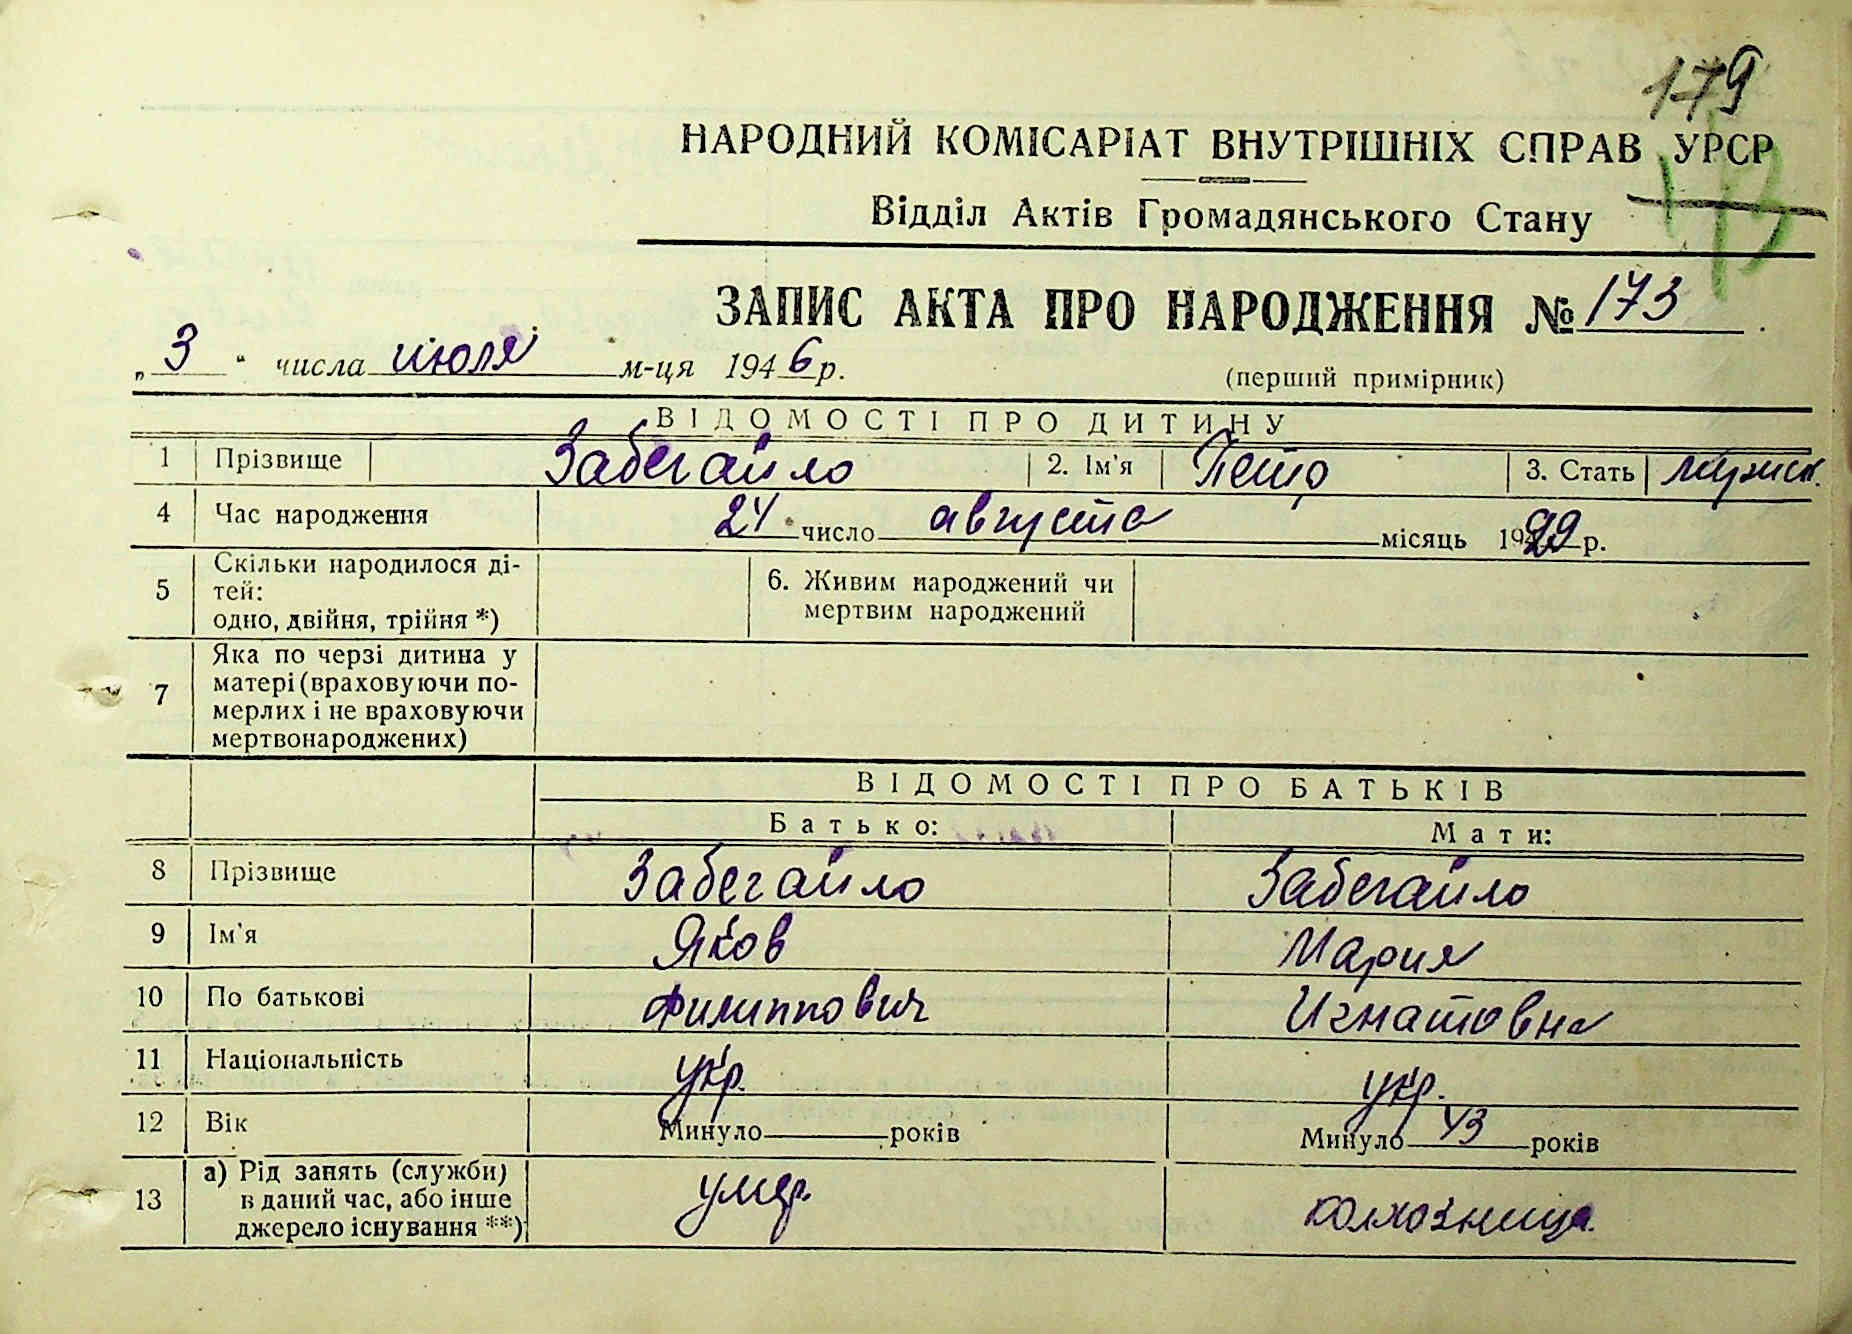 179
НАРОДНИЙ КОМІСАРІАТ ВНУТРІШНІХ СПРАВ УРСР
Відділ Актів Громадянського Стану
173
ЗАПИС АКТА ПРО НАРОДЖЕННЯ № 173
„ 3 “ числа июля м-ця 1946 р.
(перший примірник)
ВІДОМОСТІ ПРО ДИТИНУ
1 Прізвище Забегайло 2. Ім'я Петр 3. Стать мужск.
4 Час народження 24 число августа місяць 1929 р.
5 Скільки народилося ді-
тей:
одно, двійня, трійня *)
6. Живим народжений чи
мертвим народжений
7 Яка по черзі дитина у
матері (враховуючи по-
мерлих і не враховуючи
мертвонароджених)
ВІДОМОСТІ ПРО БАТЬКІВ
Батько: Мати:
8 Прізвище Забегайло Забегайло
9 Ім'я Яков Мария
10 По батькові Филиппович Игнатовна
11 Національність укр. укр.
12 Вік Минуло років Минуло 43 років
13 а) Рід занять (служби)
в даний час, або інше
джерело існування **)
умер. колхозница.